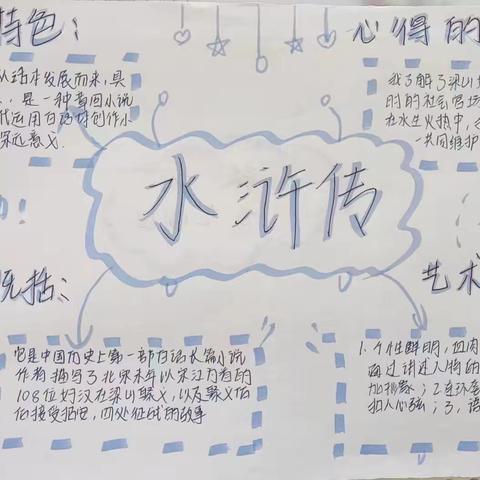 特色：
心得的
从话本发展而来，具
是一种章回小说
代运用白话文创作小
深远意义.
我了解了梁山
时的社会
在水生火热中，
一共同维护
！
水浒传
概括：
艺术
它是中国历史上第一部白话长篇小说
作者描写了北宋末年以宋江为首的
108位好汉在梁山聚义，以及聚义
后接受招安，四处征战的故事
1.个性鲜明，血肉
通过讲述人物的
加抽象；2.连环
扣人心弦；3，语